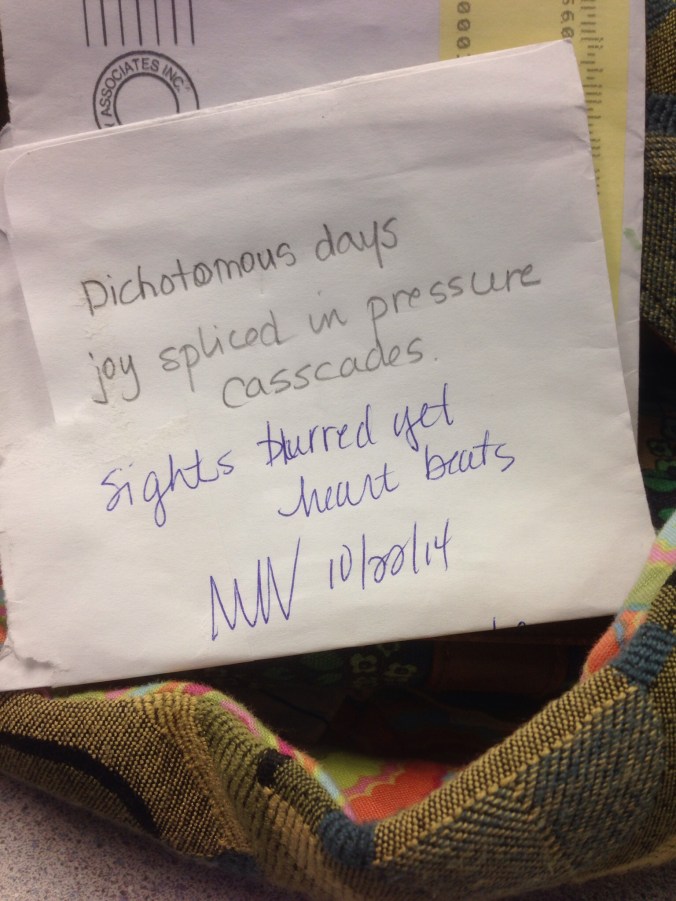 ASSOCIATES INC.
0000
560
Dichotomous days
joy spliced in pressure
casscades.
Sights blurred yet
heart beats
10/22/14